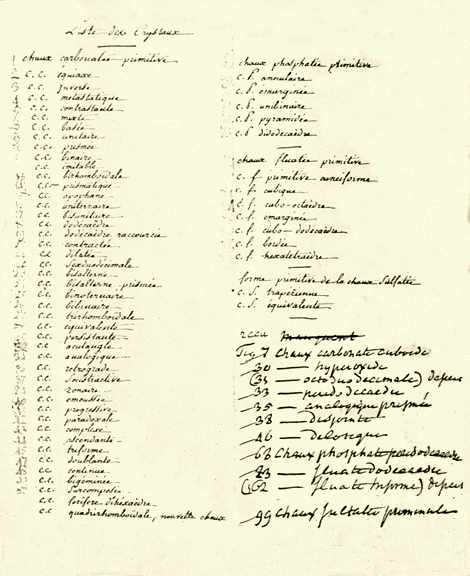 Liste des Crystaux
chaux carbonatée primitive
c. c. equiaxe
c. c. Inverse
c. c. métastatique
c. c. contrastante
c. c. mixte
c. c. basée
c. c. unitaire
c. c. prismée
c. c. binaire
c. c. imitable
c. c. birhomboidale
c. c. prismatique
c. c. apophane
c. c. uniternaire
c. c. bisunitaire
c. c. dodécaèdre
c. c. dodécaèdre raccourcie
c. c. contractée
c. c. dilatée
c. c. Sexduodecimale
c. c. bisalterne
c. c. bisalterne prismée
c. c. binoternaire
c. c. bibinaire
c. c. trirhomboidale
c. c. equivalente
c. c. persistante
c. c. acutangle
c. c. analogique
c. c. retrograde
c. c. Soustractive
c. c. zonaire
c. c. emoussée
c. c. progressive
c. c. paradoxale
c. c. complexe
c. c. ascendante
c. c. triforme
c. c. doublante
c. c. continue
c. c. bigéminée
c. c. Surcomposée
c. c. quadrirhomboidale, nouvelle chaux
chaux phosphatée primitive
c. p. annulaire
c. p. emarginée
c. p. unibinaire
c. p. pyramidée
c. p. didodécaèdre
chaux fluatée primitive
c. f. primitive cunéiforme
c. f. cubique
c. f. cubo-octaèdre
c. f. emarginée
c. f. cubo-dodecaèdre
c. f. bordée
c. f. hexatetraèdre
forme primitive de la chaux Sulfatée
c. S. trapézienne
c. S. équivalente
recu manquent
Fig 7 Chaux carbonatée cuboide
30 — hyperoxide
(31 — octoduodecimale) depuis
33 — pseudodecaedre
35 — analogique prismée
38 — disjointe
46 — delotique
68 Chaux phosphatée
83 — fluatée dodecaedre
(102 — fluatée Informe) depuis
99 Chaux Sulfatée prominule